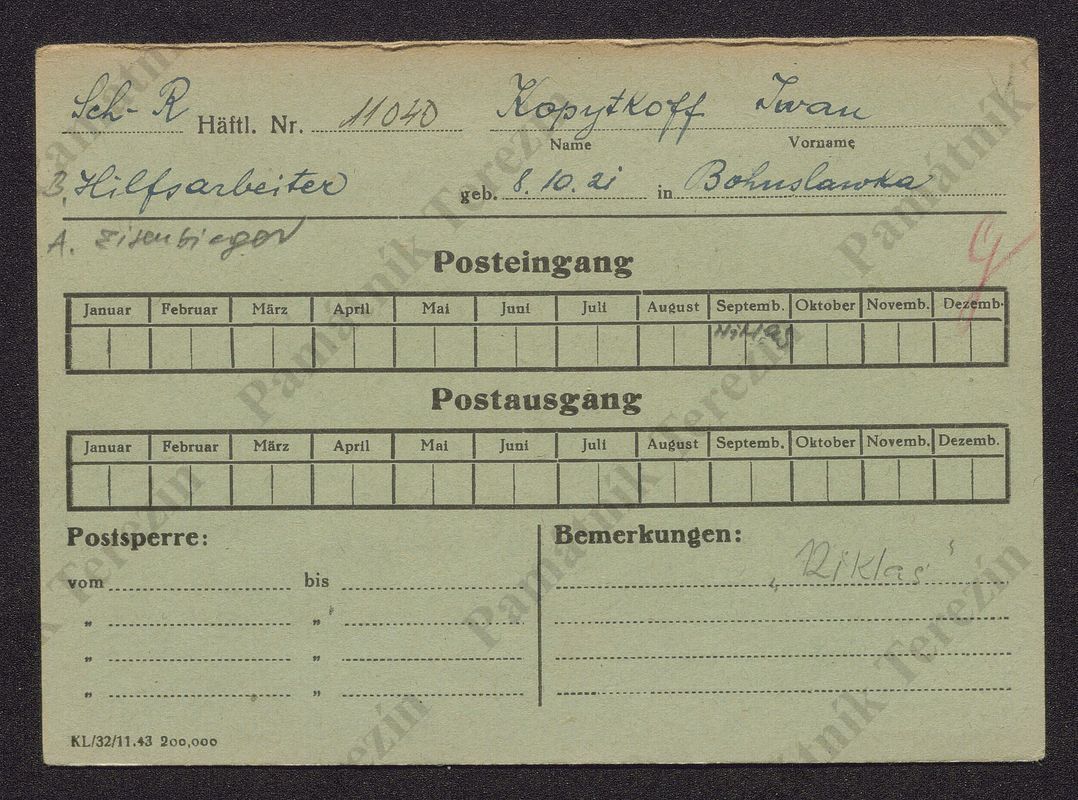 Sch-R Häftl. Nr. 11040 Kopytkoff Iwan
Name Vorname
B. Hilfsarbeiter geb. 8.10.21 in Bohuslawka
A. Eisenbieger
Posteingang
Januar Februar März April Mai Juni Juli August Septemb. Oktober Novemb. Dezemb.
Postausgang
Januar Februar März April Mai Juni Juli August Septemb. Oktober Novemb. Dezemb.
Postsperre: Bemerkungen:
vom bis
„ „
„ „
„ „
KL/32/11.43 200,000
Památník Terezín